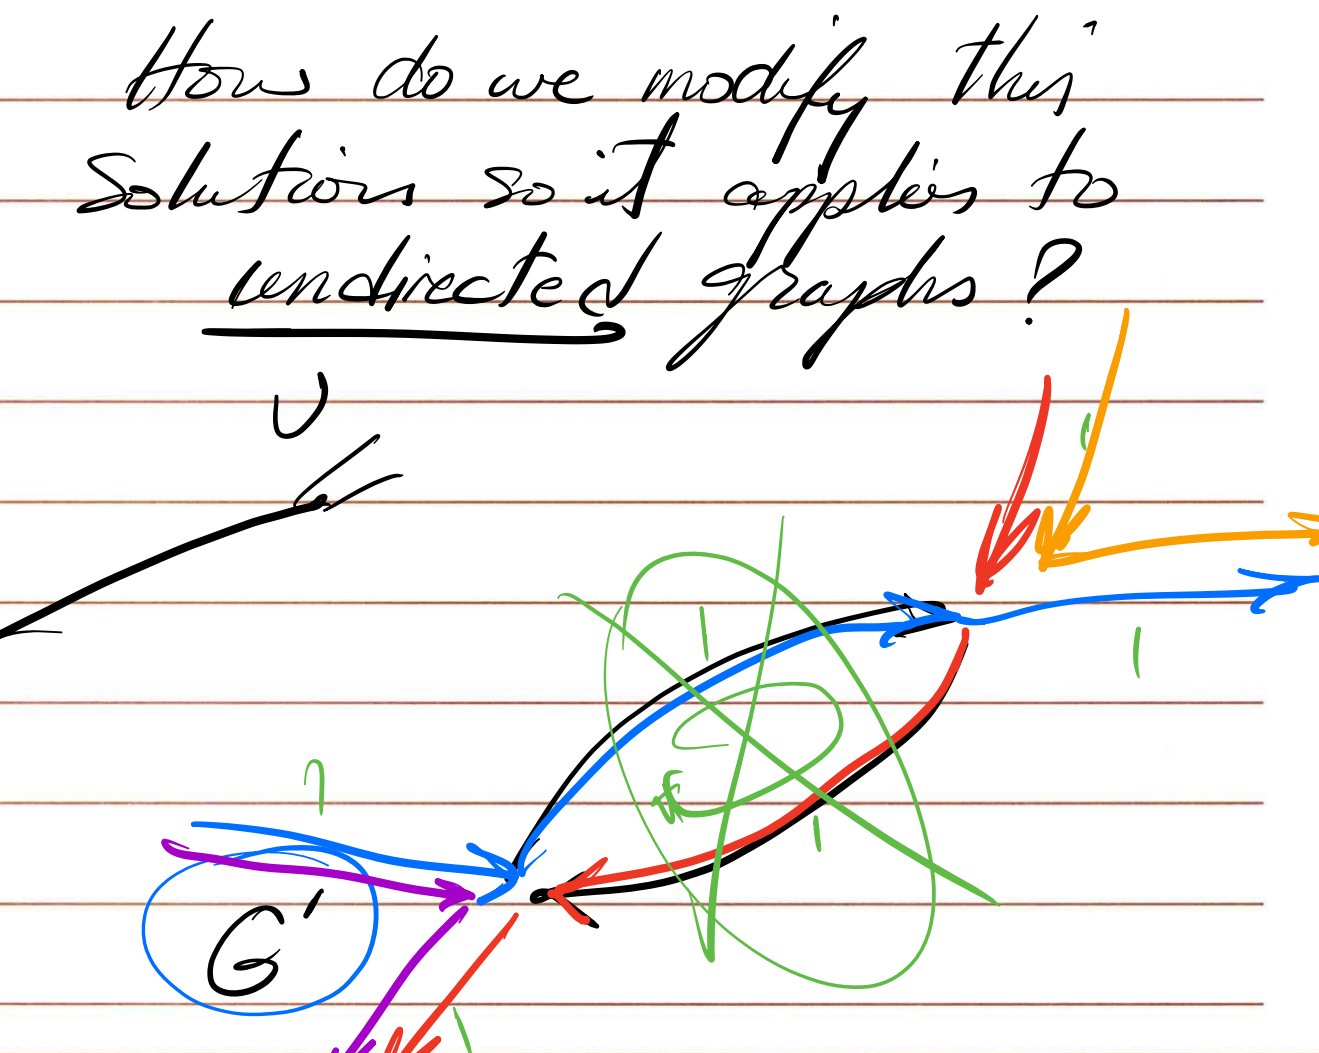 How do we modify this
solution so it applies to
undirected graphs?
υ
1
1
1
1
1
G'